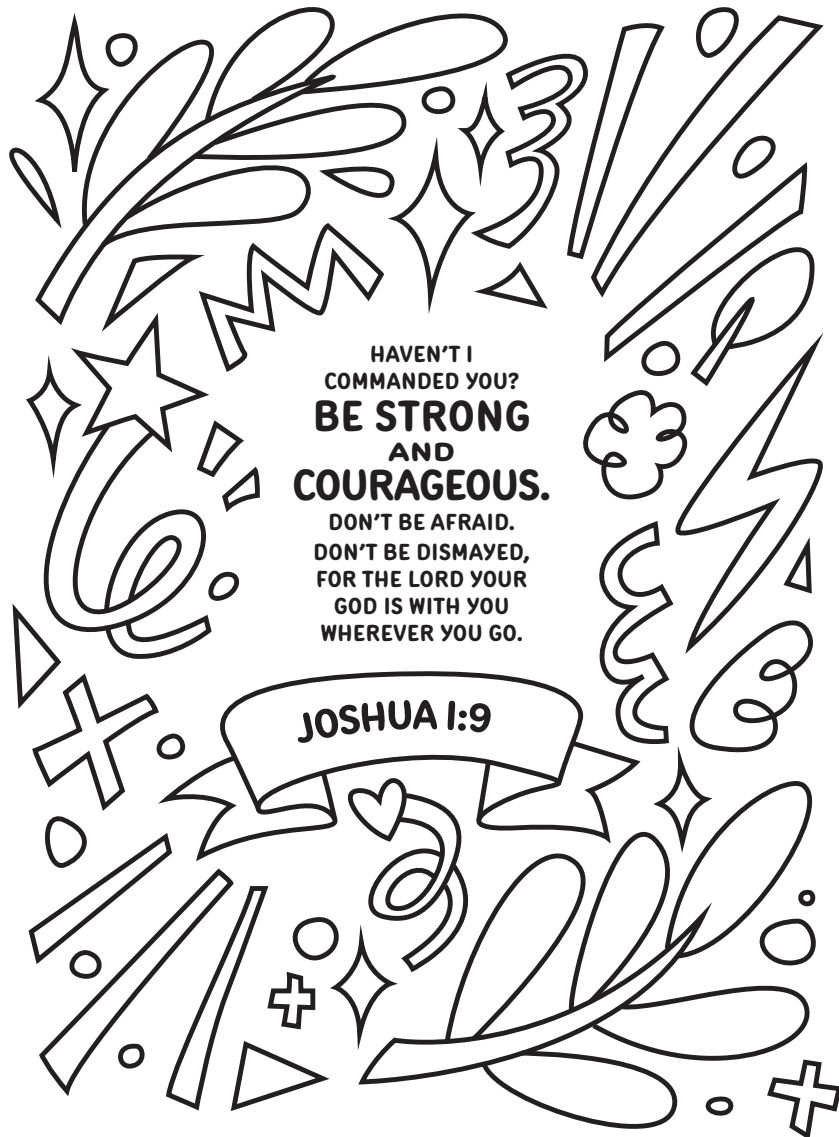 HAVEN'T I
COMMANDED YOU?
BE STRONG
AND
COURAGEOUS.
DON'T BE AFRAID.
DON'T BE DISMAYED,
FOR THE LORD YOUR
GOD IS WITH YOU
WHEREVER YOU GO.
JOSHUA 1:9